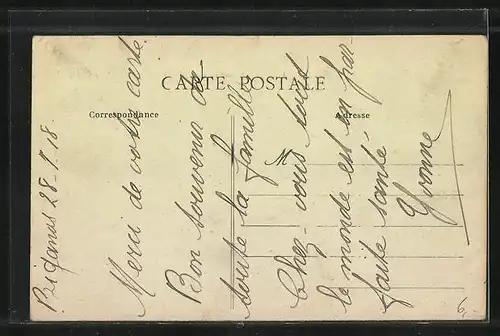 CARTE POSTALE
Correspondance
Adresse
Biganos 28-7-18
Merci de votre carte.
Bon souvenir à
toute la famille
Chez vous tout
le monde est en par-
faite santé.
Yvonne